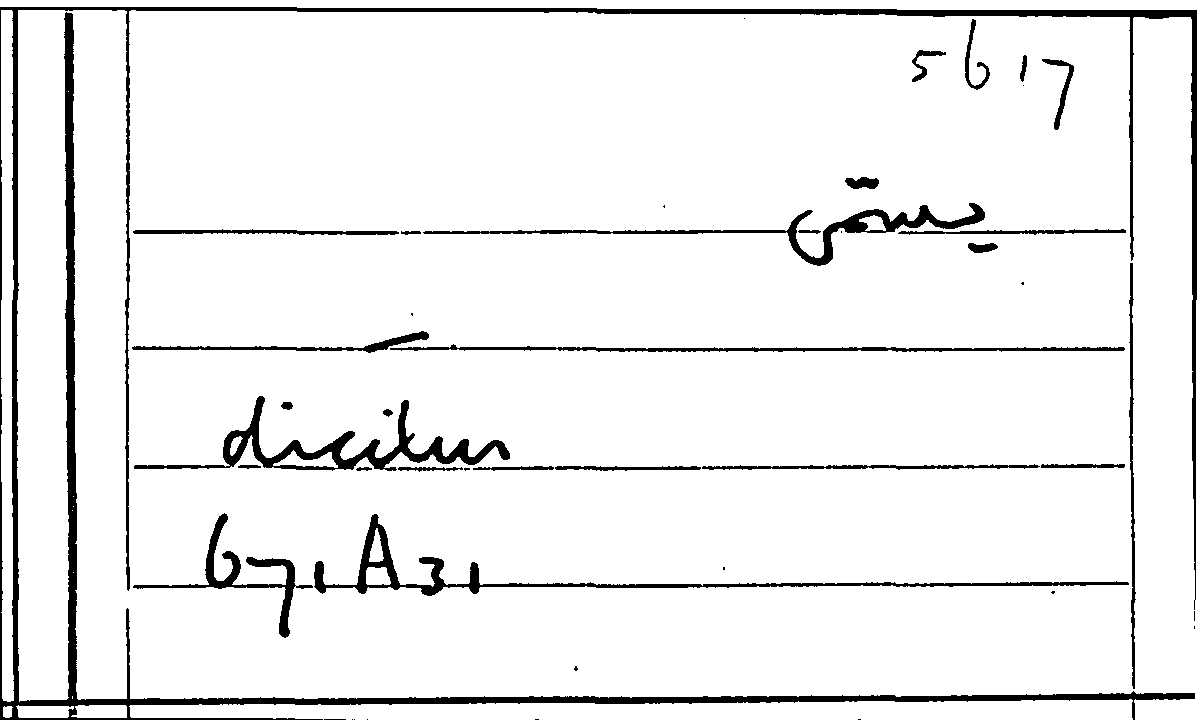 5617
يسمّى
—
dicitur
671A31